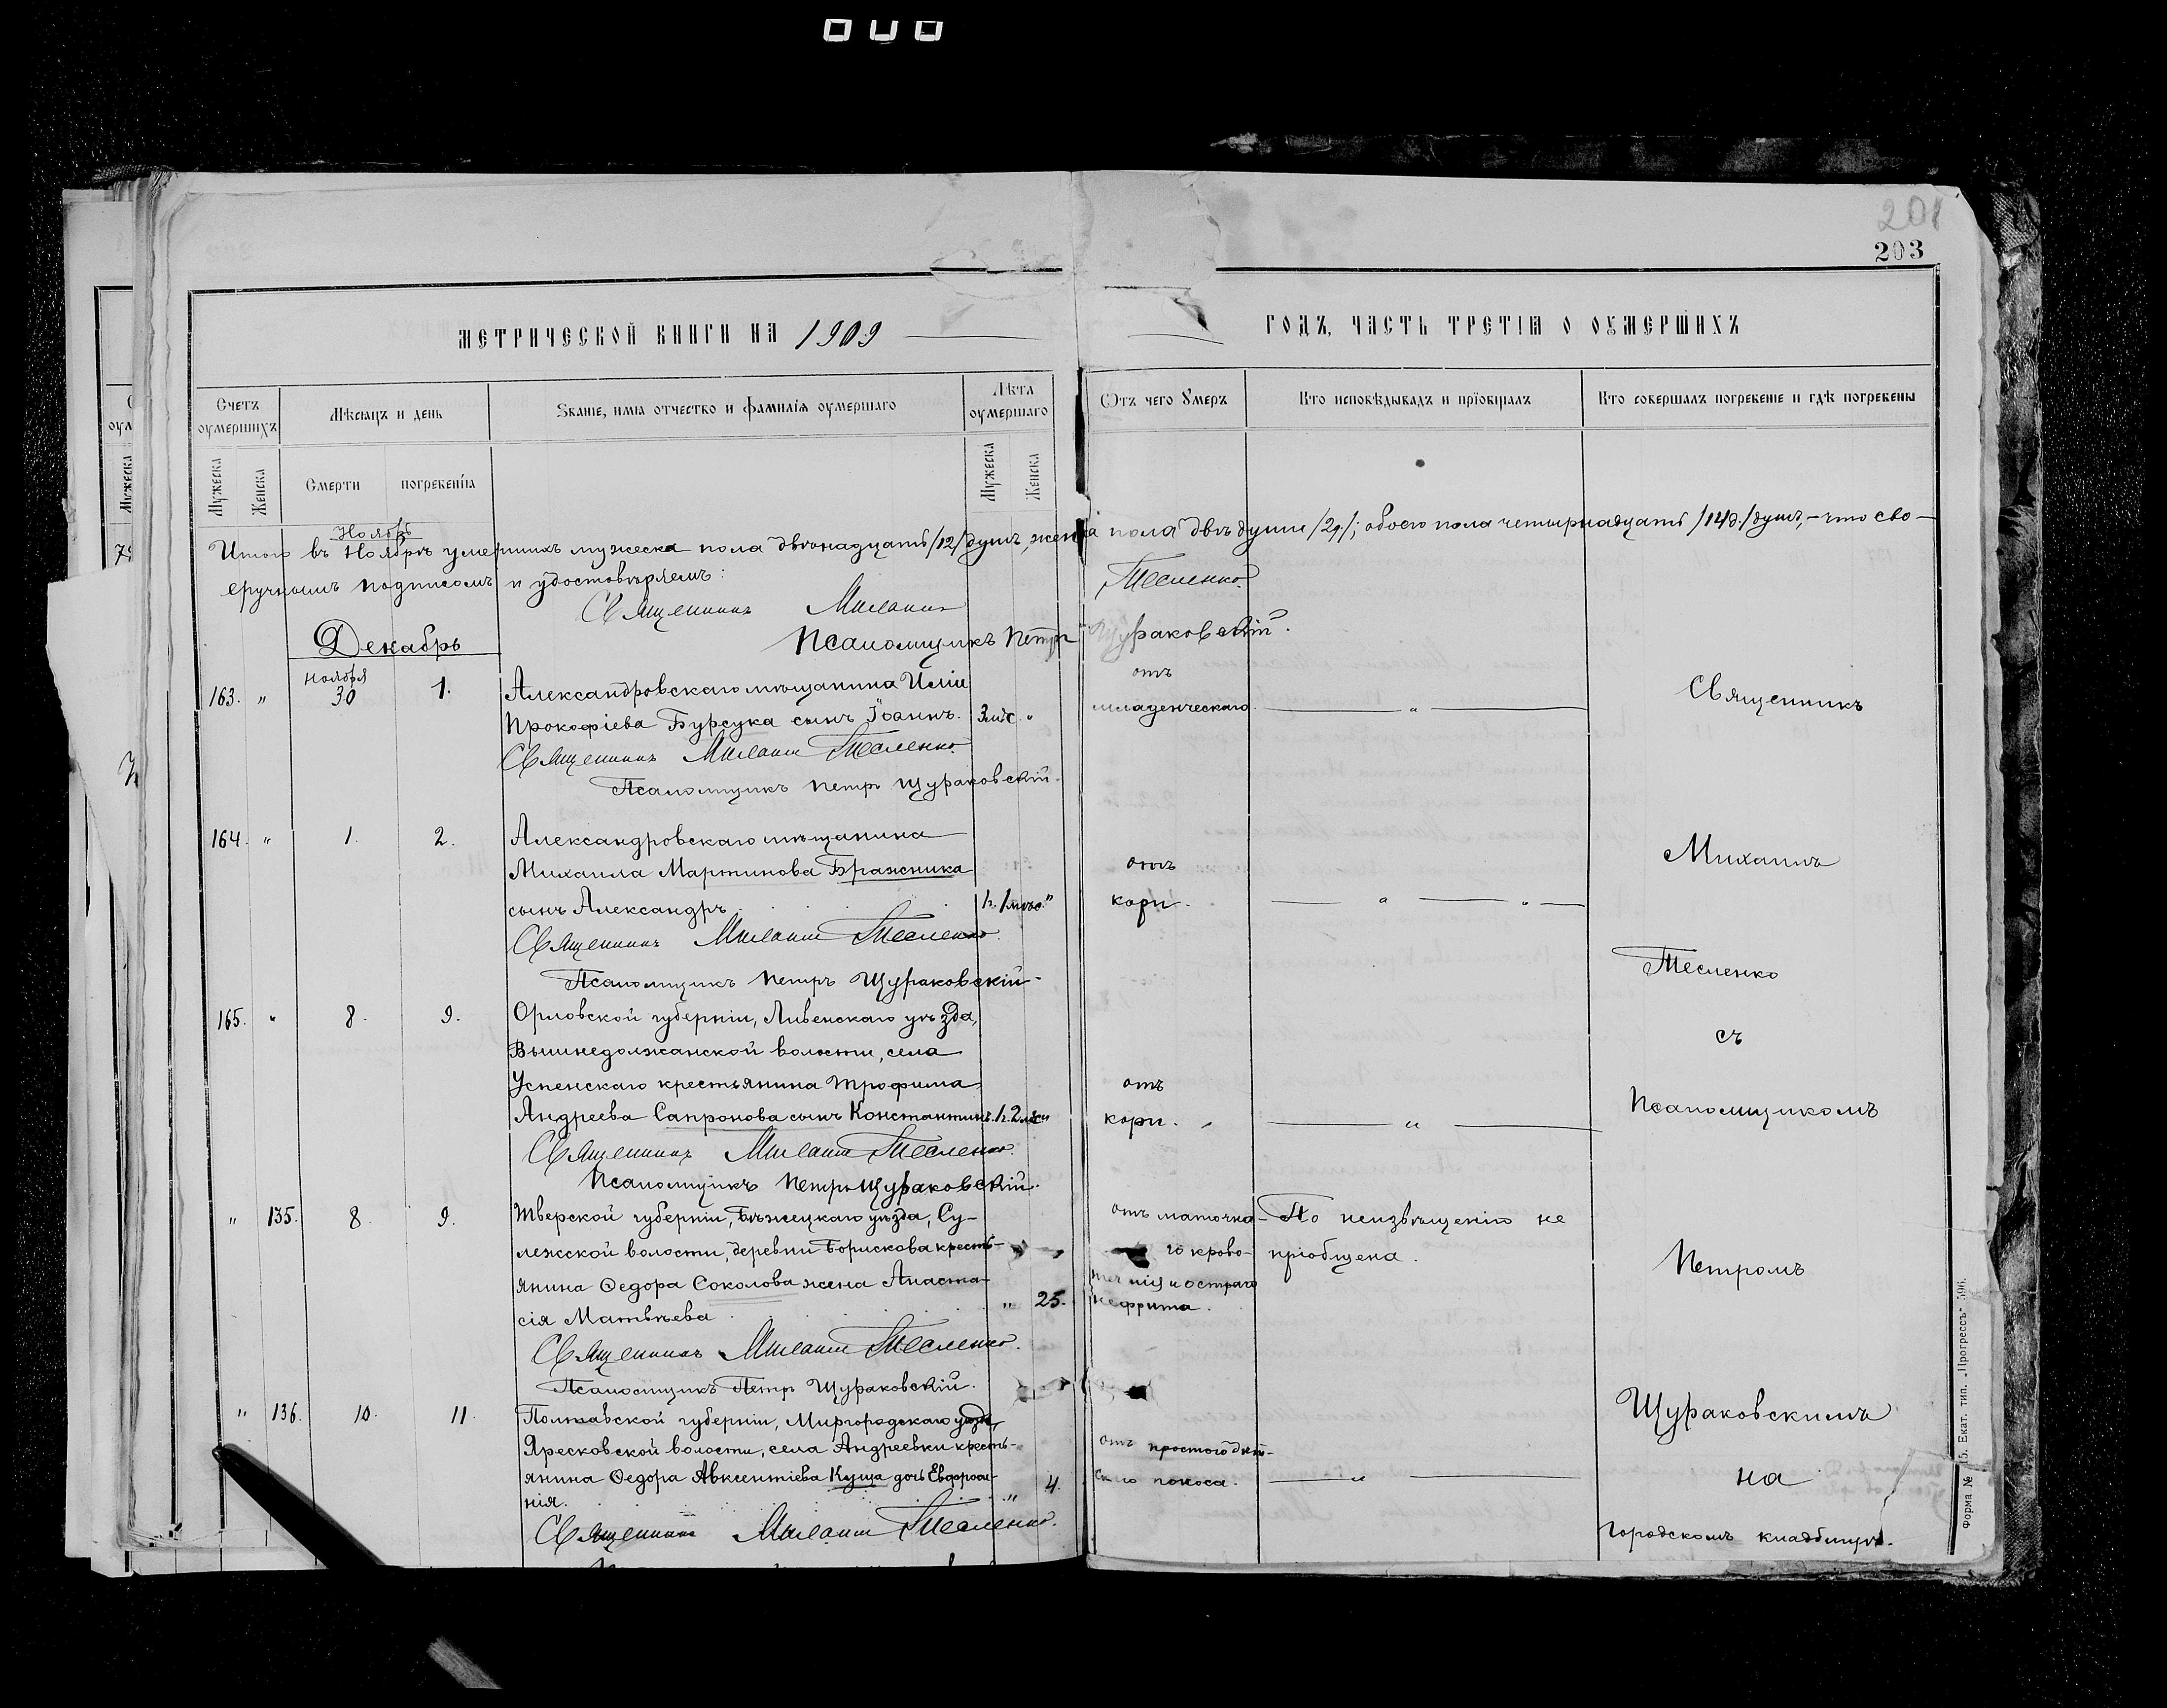 201
203
МЕТРИЧЕСКОЙ КНИГИ НА 1909
ГОДЪ, ЧАСТЬ ТРЕТІЯ О ОУМЕРШИХЪ
Счетъ оумершихъ
Мѣсяцъ и день
Званіе, имя отчество и фамилія оумершаго
Лѣта оумершаго
Отъ чего умеръ
Кто исповѣдывалъ и пріобщалъ
Кто совершалъ погребеніе и гдѣ погребены
Мужеска
Женска
Смерти
погребенія
Мужеска
Женска
Ноябрь
Итого въ Ноябрѣ умершихъ мужеска пола двѣнадцать /12/ душъ, женска пола двѣ души /2д./; обоего пола четырнадцать /14д./ душъ, – что сво-
еручнымъ подписомъ и удостовѣряемъ:
Священникъ Михаилъ Тесленко.
Псаломщикъ Петръ Щураковскій.
Декабрь
163. " Ноября 30 1. Александровскаго мѣщанина Иліи
Прокофіева Бурсука сынъ Іоаннъ. 3 мѣс. "
отъ
младенческаго. — " —
Священникъ
Священникъ Михаилъ Тесленко.
Псаломщикъ Петръ Щураковскій.
164. " 1. 2. Александровскаго мѣщанина
Михаила Мартинова Бражника
сынъ Александръ. 1г. 1 мѣс. "
отъ
кори. — " — " —
Михаилъ
Священникъ Михаилъ Тесленко.
Псаломщикъ Петръ Щураковскій.
Тесленко
165. " 8. 9. Орловской губерніи, Ливенскаго уѣзда,
Вышнедолжанской волости, села
Успенскаго крестьянина Трофима
Андреева Сапронова сынъ Константинъ. 1г. 2 мѣс. "
отъ
кори. — " —
съ
Псаломщикомъ
Священникъ Михаилъ Тесленко.
Псаломщикъ Петръ Щураковскій.
" 135. 8. 9. Тверской губерніи, Бѣжецкаго уѣзда, Су-
лежской волости, деревни Борискова кресть-
янина Ѳедора Соколова жена Анаста-
сія Матвѣева. " 25.
отъ маточна-
го крово-
теченія и остраго
нефрита.
По неизвѣщенію не
пріобщена.
Петромъ
Священникъ Михаилъ Тесленко.
Псаломщикъ Петръ Щураковскій.
" 136. 10. 11. Полтавской губерніи, Миргородскаго уѣзда,
Яресковской волости, села Андреевки кресть-
янина Ѳедора Авксентіева Куща дочь Евфроси-
нія. " 4.
отъ простого дѣт-
скаго поноса. — " —
Щураковскимъ
на
городскомъ кладбищѣ.
Священникъ Михаилъ Тесленко.
Екат. тип. „Прогрессъ"
Форма №